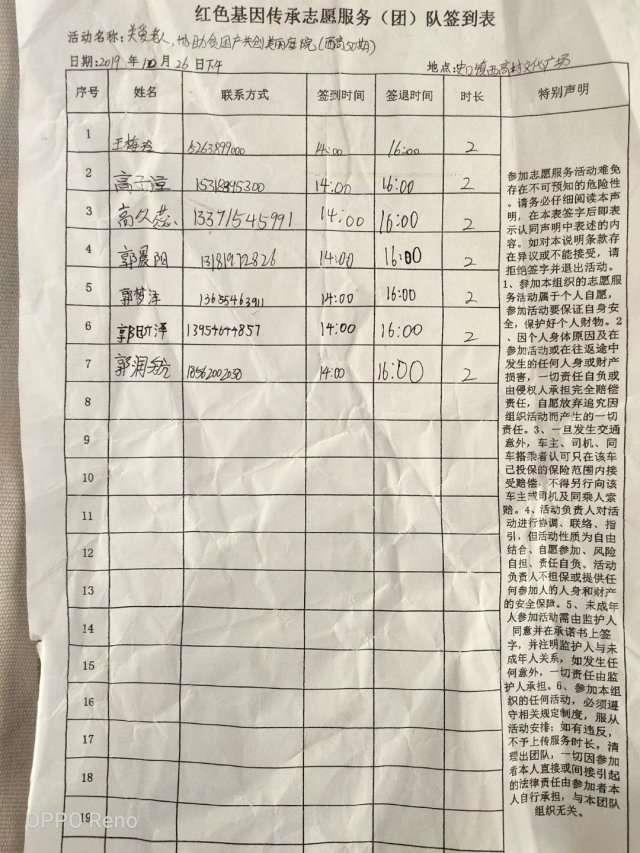 红色基因传承志愿服务（团）队签到表
活动名称：关爱老人，协助贫困户共创美丽庭院（西高50期）
日期：2019 年 10 月 26 日下午 地点：史口镇西高村文化广场
序号 姓名 联系方式 签到时间 签退时间 时长 特别声明
1 王梅玲 6263899000 14:00 16:00 2
2 高子 15318345300 14:00 16:00 2
3 高久蕊 13371545991 14:00 16:00 2
4 郭晨阳 13181972826 14:00 16:00 2
5 郭梦泽 13655463911 14:00 16:00 2
6 郭 泽 13954644857 14:00 16:00 2
7 郭润 18562002050 14:00 16:00 2
8
9
10
11
12
13
14
15
16
17
18
19
参加志愿服务活动难免
存在不可预知的危险性
，请务必仔细阅读本声
明，在本表签字后即表
示认同声明中表述的内
容。如对本说明条款存
在异议或不能接受，请
拒绝签字并退出活动。
1、参加本组织的志愿服
务活动属于个人自愿，
参加活动要保证自身安
全，保护好个人财物。2
、因个人身体原因及在
参加活动或在往返途中
发生的任何人身或财产
损害，一切责任自负或
由侵权人承担完全赔偿
责任，自愿放弃追究因
组织活动而产生的一切
责任。3、一旦发生交通
意外，车主、司机、同
车搭乘者认可只在该车
已投保的保险范围内接
受赔偿，不得另行向该
车主或司机及同乘人索
赔。4、活动负责人对活
动进行协调、联络、指
引，但活动性质为自由
结合、自愿参加、风险
自担、责任自负、活动
负责人不担保或提供任
何参加人的人身和财产
的安全保障。5、未成年
人参加活动需由监护人
同意并在承诺书上签
字，并注明监护人与未
成年人关系，如发生任
何意外，一切责任由监
护人承担。6、参加本组
织的任何活动，必须遵
守相关规定制度，服从
活动安排；如有违反，
不予上传服务时长，清
理出团队，一切因参加
者本人直接或间接引起
的法律责任由参加者本
人自行承担，与本团队
组织无关。
OPPO Reno